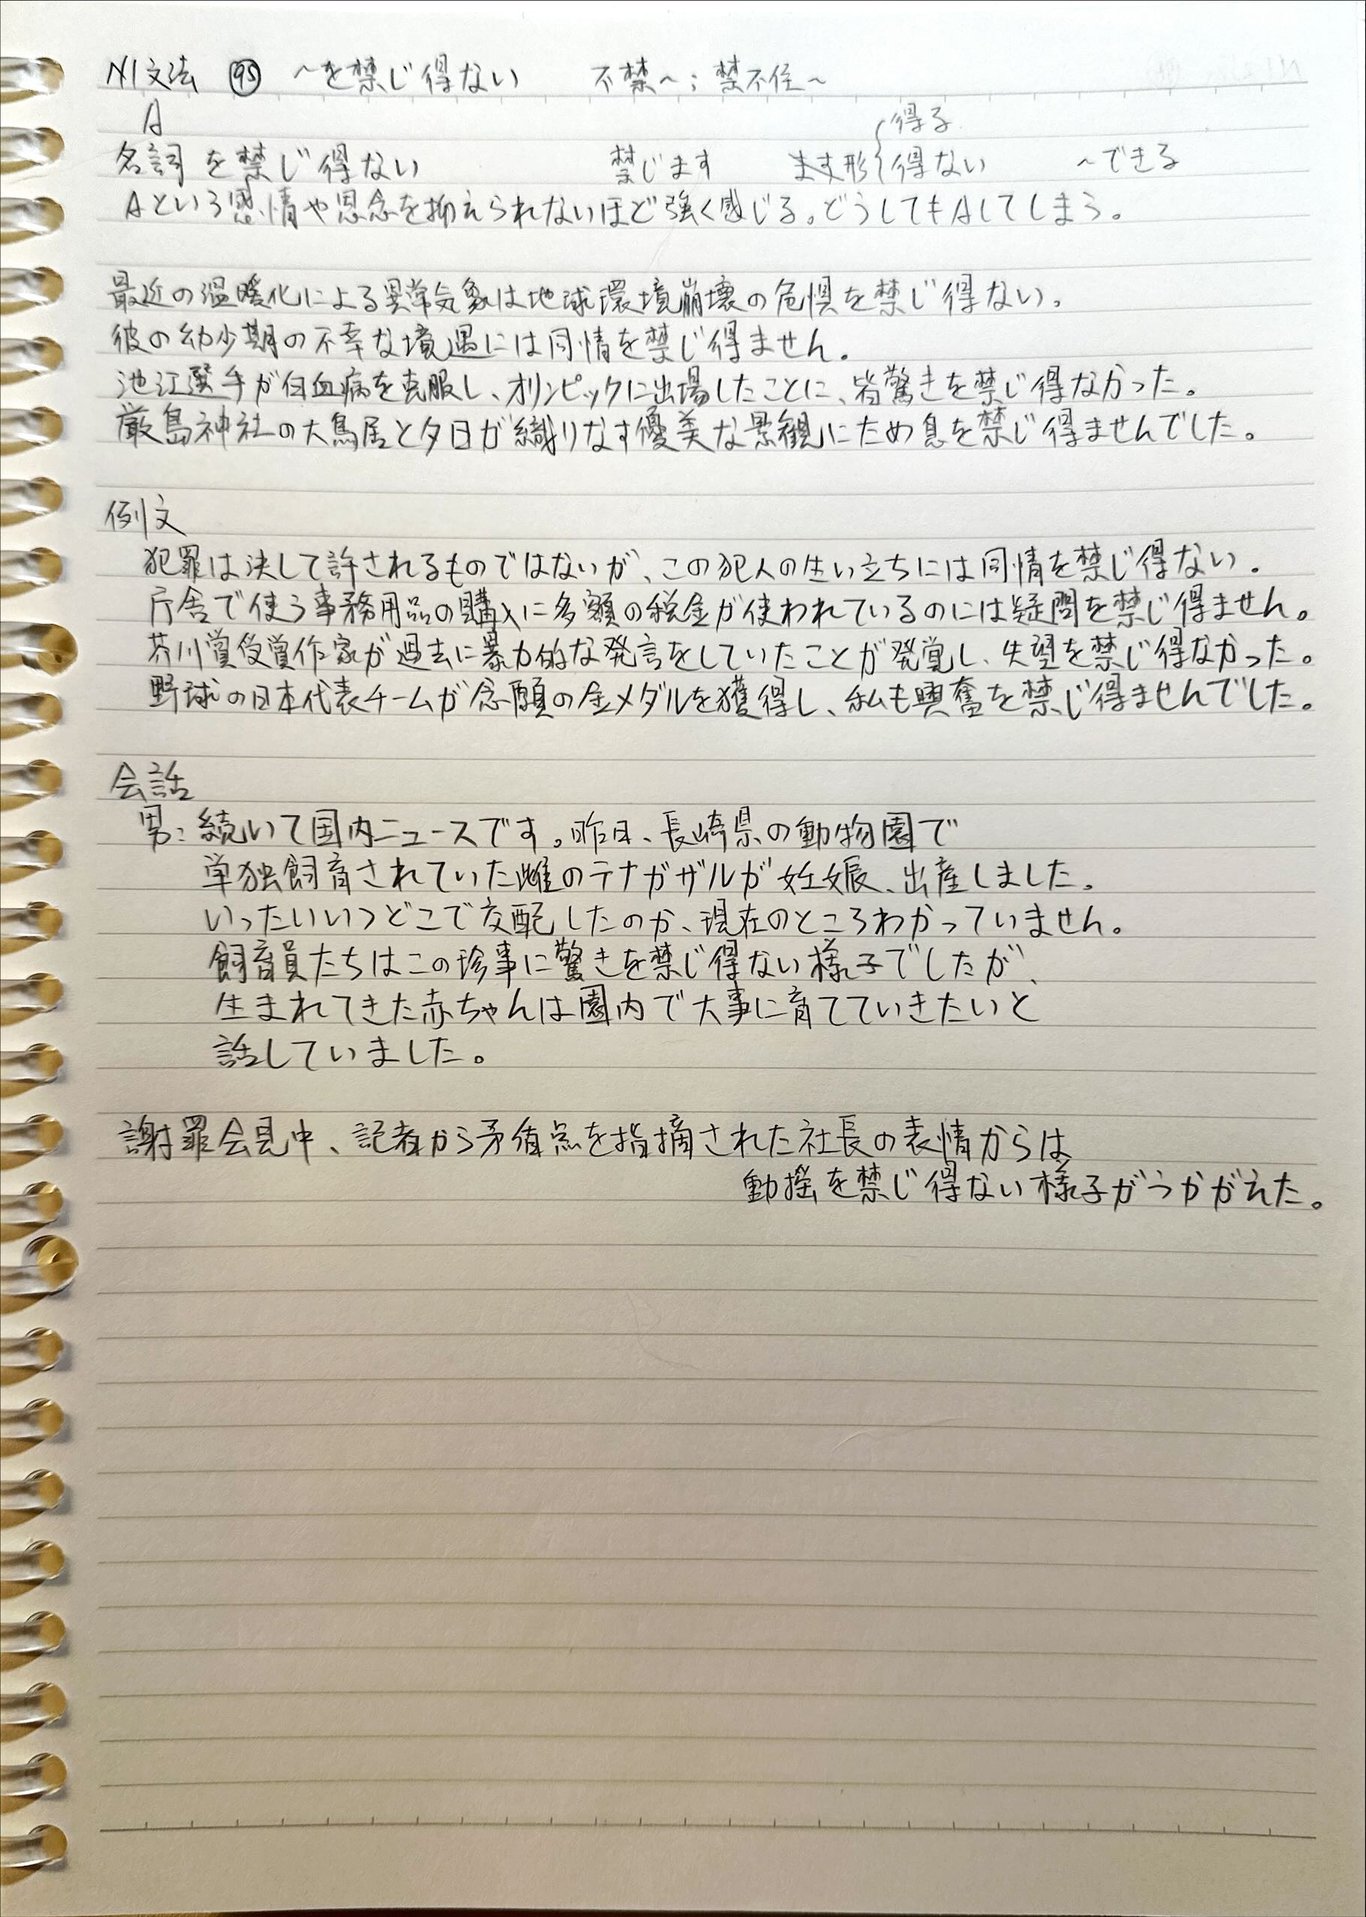 N1文法 ㊿95 ～を禁じ得ない 不禁～；禁不住～
A
名詞 を禁じ得ない 禁じます ます形 { 得る 得ない ～できる
Aという感情や思念を抑えられないほど強く感じる。どうしてもAしてしまう。
最近の温暖化による異常気象は地球環境崩壊の危惧を禁じ得ない。
彼の幼少期の不幸な境遇には同情を禁じ得ません。
池江選手が白血病を克服し、オリンピックに出場したことに、皆驚きを禁じ得なかった。
厳島神社の大鳥居と夕日が織りなす優美な景観にため息を禁じ得ませんでした。
例文
犯罪は決して許されるものではないが、この犯人の生い立ちには同情を禁じ得ない。
庁舎で使う事務用品の購入に多額の税金が使われているのには疑問を禁じ得ません。
芥川賞受賞作家が過去に暴力的な発言をしていたことが発覚し、失望を禁じ得なかった。
野球の日本代表チームが念願の金メダルを獲得し、私も興奮を禁じ得ませんでした。
会話
男：続いて国内ニュースです。昨日、長崎県の動物園で
単独飼育されていた雌のテナガザルが妊娠、出産しました。
いったいいつどこで交配したのか、現在のところわかっていません。
飼育員たちはこの珍事に驚きを禁じ得ない様子でしたが、
生まれてきた赤ちゃんは園内で大事に育てていきたいと
話していました。
謝罪会見中、記者から矛盾点を指摘された社長の表情からは
動揺を禁じ得ない様子がうかがえた。